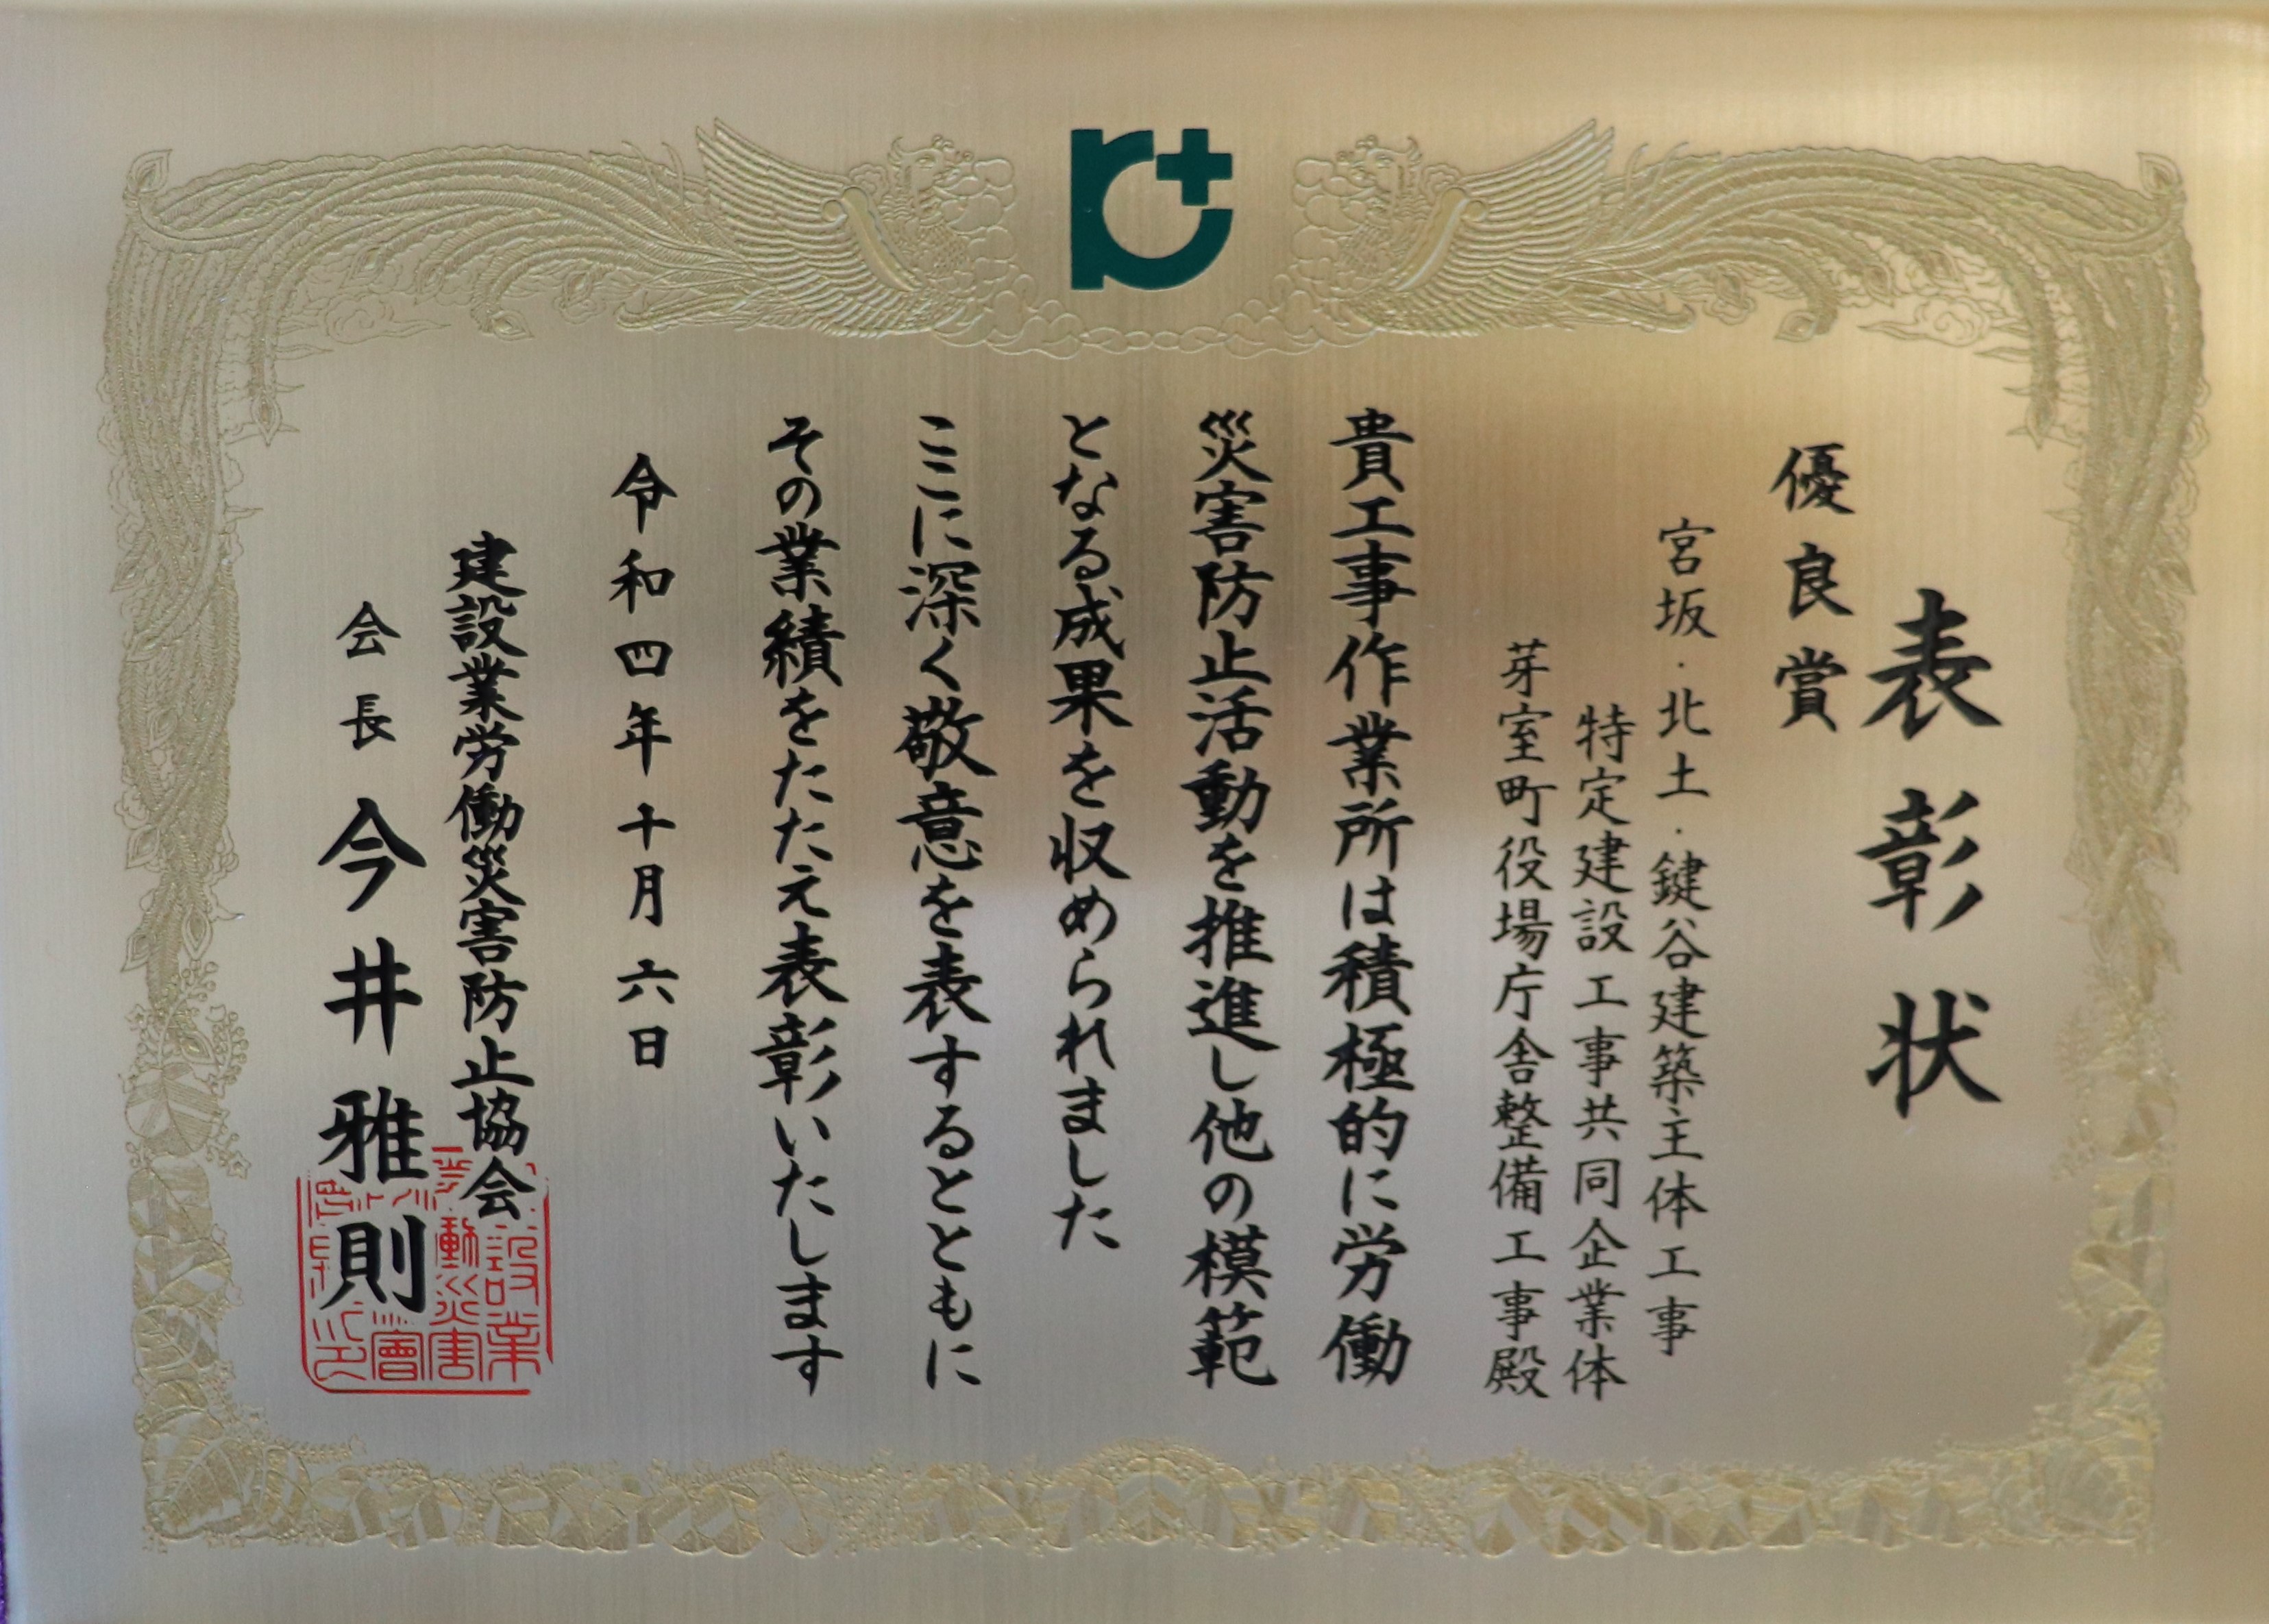 表彰状
優良賞
宮坂・北土・鍵谷建築主体工事
特定建設工事共同企業体
芽室町役場庁舎整備工事殿
貴工事作業所は積極的に労働
災害防止活動を推進し他の模範
となる成果を収められました
ここに深く敬意を表するとともに
その業績をたたえ表彰いたします
令和四年十月六日
建設業労働災害防止協会
会長 今井雅則